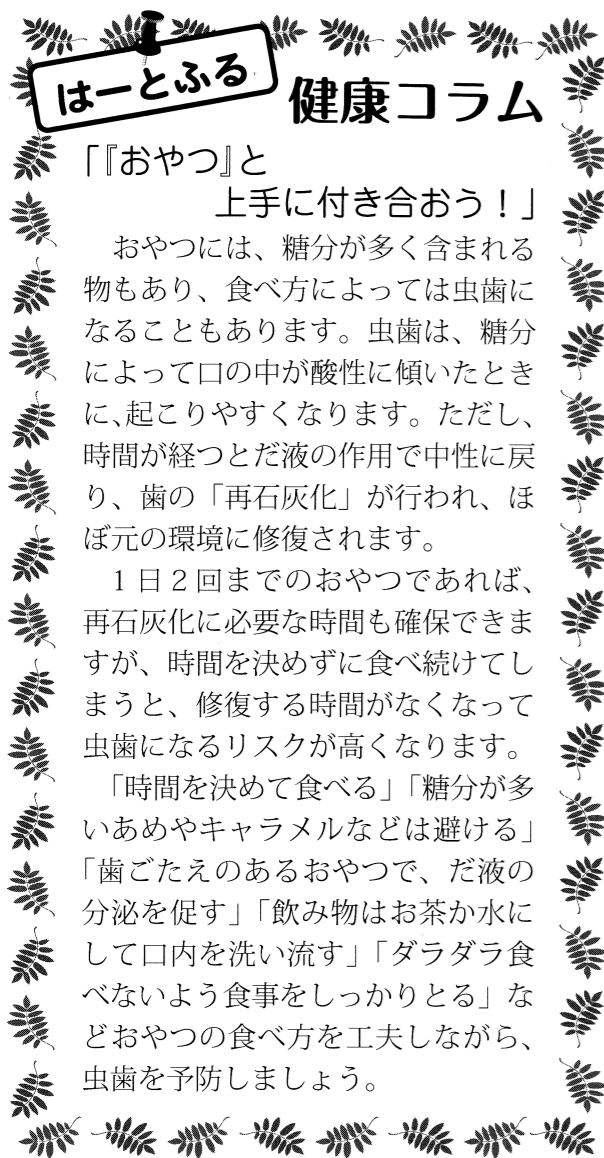 はーとふる
健康コラム
「『おやつ』と
上手に付き合おう！」
　おやつには、糖分が多く含まれる
物もあり、食べ方によっては虫歯に
なることもあります。虫歯は、糖分
によって口の中が酸性に傾いたとき
に、起こりやすくなります。ただし、
時間が経つとだ液の作用で中性に戻
り、歯の「再石灰化」が行われ、ほ
ぼ元の環境に修復されます。
　１日２回までのおやつであれば、
再石灰化に必要な時間も確保できま
すが、時間を決めずに食べ続けてし
まうと、修復する時間がなくなって
虫歯になるリスクが高くなります。
　「時間を決めて食べる」「糖分が多
いあめやキャラメルなどは避ける」
「歯ごたえのあるおやつで、だ液の
分泌を促す」「飲み物はお茶か水に
して口内を洗い流す」「ダラダラ食
べないよう食事をしっかりとる」な
どおやつの食べ方を工夫しながら、
虫歯を予防しましょう。